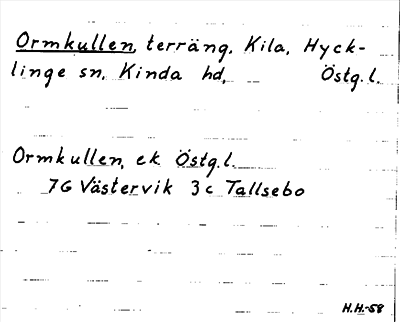 Ormkullen, terräng, Kila, Hyck-
linge sn, Kinda hd, Östg.l.
Ormkullen, ek Östg.l.
7G Västervik 3c Tallsebo
H.H.-58